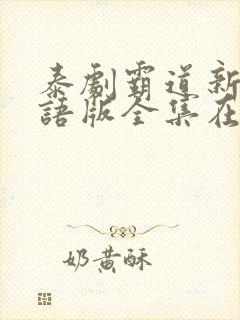 泰劇霸道新
語版全集在
奶黄酥